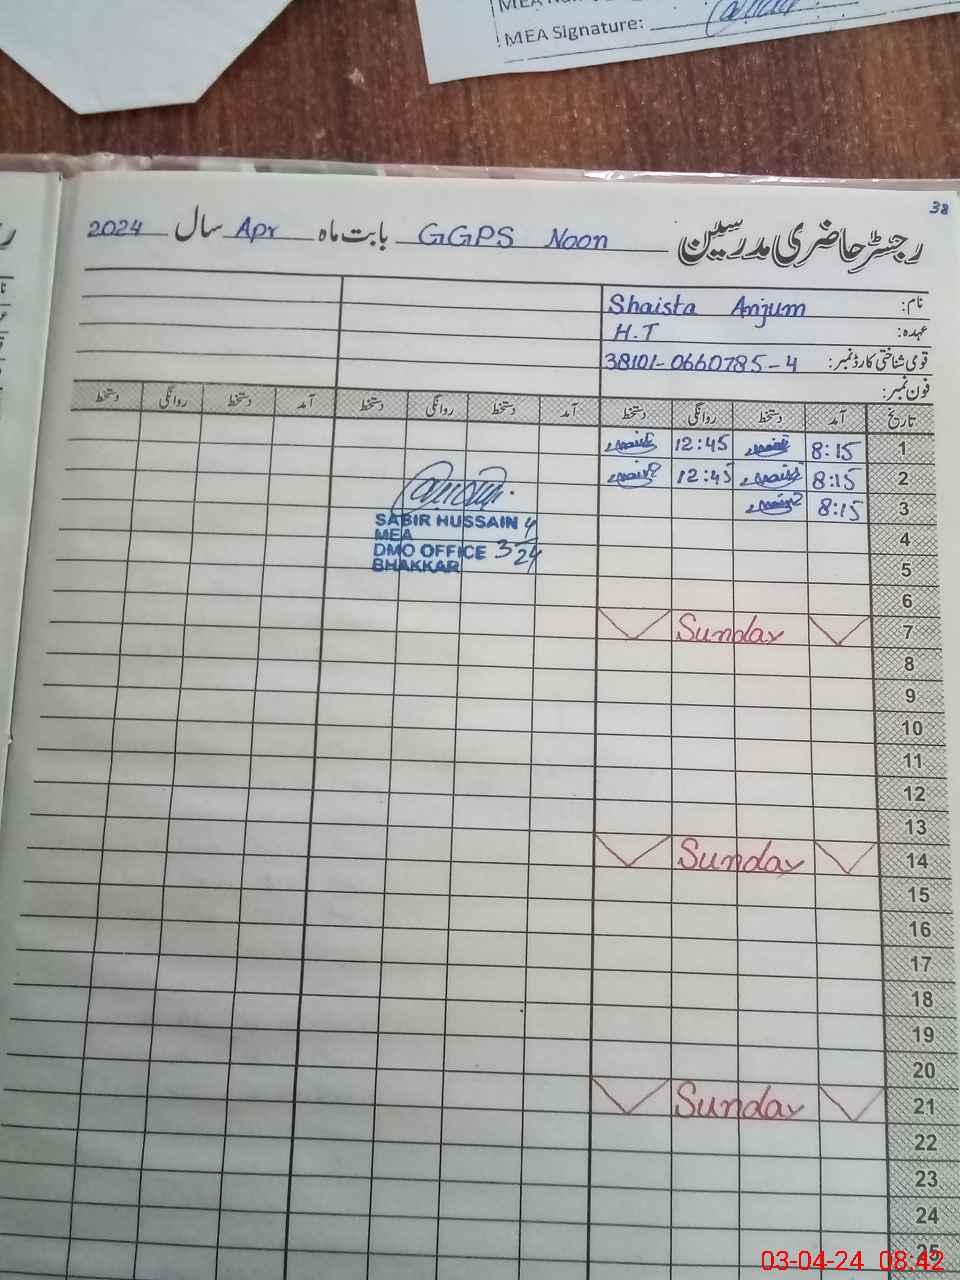 MEA Signature:
38
رجسٹر حاضری مدرسین GGPS Noon بابت ماہ Apr سال 2024
نام: Shaista Anjum
عہدہ: H.T
قومی شناختی کارڈ نمبر: 38101-0660785-4
فون نمبر:
تاریخ آمد دستخط روانگی دستخط آمد دستخط روانگی دستخط آمد دستخط روانگی دستخط
1 8:15 12:45
2 8:15 12:45
3 8:15
SABIR HUSSAIN
MEA
DMO OFFICE
BHAKKAR
3/4/24
4
5
6
7 Sunday
8
9
10
11
12
13
14 Sunday
15
16
17
18
19
20
21 Sunday
22
23
24
25
03-04-24 08:42